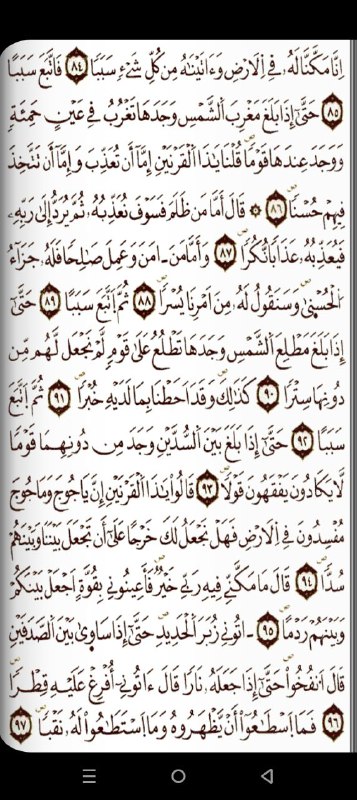 اِنَّا مَكَّنَّا لَهُۥ فِے اِ۬لَارْضِ وَءَاتَيْنَٰهُ مِن كُلِّ شَےْءٖ سَبَباٗ ٨٤ فَاتَّبَعَ سَبَباً
٨٥ حَتَّىٰٓ إِذَا بَلَغَ مَغْرِبَ اَ۬لشَّمْسِ وَجَدَهَا تَغْرُبُ فِے عَيْنٍ حَمِئَةٖ
وَوَجَدَ عِندَهَا قَوْماٗ قُلْنَا يَٰذَا اَ۬لْقَرْنَيْنِ إِمَّآ أَن تُعَذِّبَ وَإِمَّآ أَن تَتَّخِذَ
فِيهِمْ حُسْناٗ ٨٦ ۞ قَالَ أَمَّا مَن ظَلَمَ فَسَوْفَ نُعَذِّبُهُۥ ثُمَّ يُرَدُّ إِلَىٰ رَبِّهِۦ
فَيُعَذِّبُهُۥ عَذَاباٗ نُّكُراٗ ٨٧ وَأَمَّا مَنَ اٰمَنَ وَعَمِلَ صَٰلِحاٗ فَلَهُۥ جَزَآءُ
اُ۬لْحُسْنَىٰ وَسَنَقُولُ لَهُۥ مِنَ اَمْرِنَا يُسْراٗ ٨٨ ثُمَّ اَ۪تَّبَعَ سَبَباً ٨٩ حَتَّىٰٓ
إِذَا بَلَغَ مَطْلِعَ اَ۬لشَّمْسِ وَجَدَهَا تَطْلُعُ عَلَىٰ قَوْمٖ لَّمْ نَجْعَل لَّهُم مِّن
دُونِهَا سِتْراٗ ٩٠ كَذَٰلِكَ وَقَدَ اَحَطْنَا بِمَا لَدَيْهِ خُبْراٗ ٩١ ثُمَّ اَ۪تَّبَعَ
سَبَباً ٩٢ حَتَّىٰٓ إِذَا بَلَغَ بَيْنَ اَ۬لسُّدَّيْنِ وَجَدَ مِن دُونِهِمَا قَوْماٗ
لَّا يَكَادُونَ يَفْقَهُونَ قَوْلاٗ ٩٣ قَالُواْ يَٰذَا اَ۬لْقَرْنَيْنِ إِنَّ يَاجُوجَ وَمَاجُوجَ
مُفْسِدُونَ فِے اِ۬لَارْضِ فَهَلْ نَجْعَلُ لَكَ خَرْجاً عَلَىٰٓ أَن تَجْعَلَ بَيْنَنَا وَبَيْنَهُمْ
سُدّاٗ ٩٤ قَالَ مَا مَكَّنِّے فِيهِ رَبِّے خَيْرٞ فَأَعِينُونِے بِقُوَّةٍ اَجْعَلْ بَيْنَكُمْ
وَبَيْنَهُمْ رَدْماً ٩٥ اٰتُونِے زُبَرَ اَ۬لْحَدِيدِ حَتَّىٰٓ إِذَا سَاوَىٰ بَيْنَ اَ۬لصَّدَفَيْنِ
قَالَ اَ۟نفُخُواْ حَتَّىٰٓ إِذَا جَعَلَهُۥ نَاراٗ قَالَ ءَاتُونِے أُفْرِغْ عَلَيْهِ قِطْراٗ
٩٦ فَمَا اَ۪سْطَٰعُوٓاْ أَن يَّظْهَرُوهُ وَمَا اَ۪سْتَطَٰعُواْ لَهُۥ نَقْباٗ ٩٧